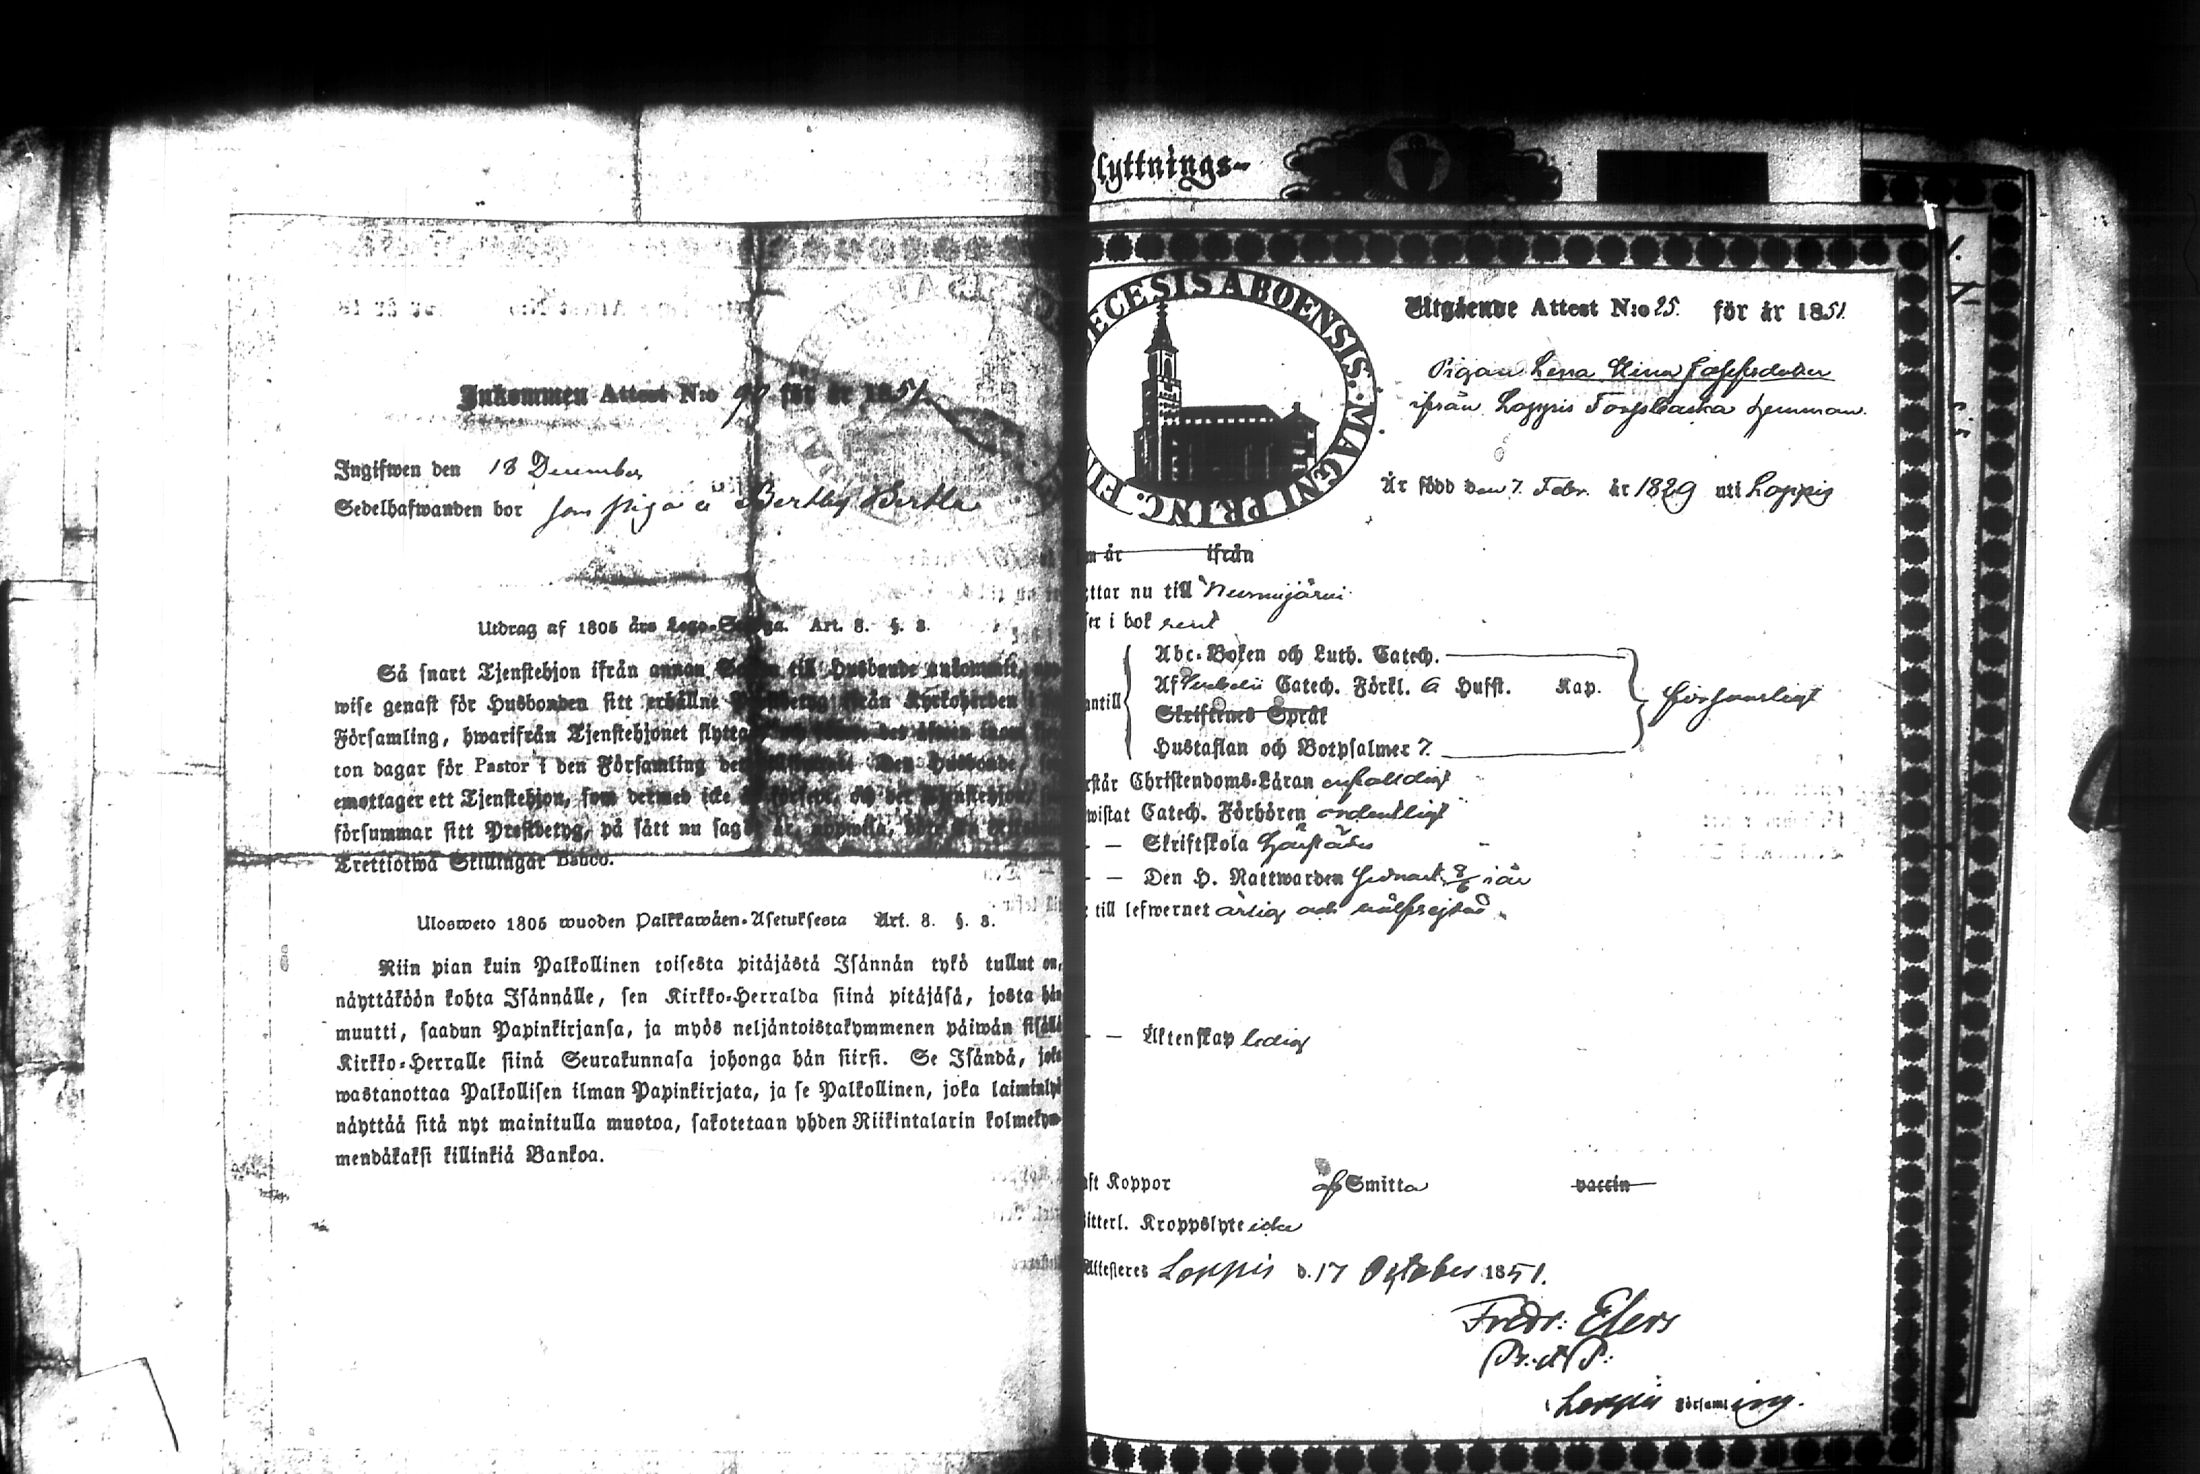 Inkommen Attest N:o 90 för år 1851.
Ingifwen den 18 December
Sedelhafwanden bor som piga å Bertby Bertla
Utdrag af 1805 års Lego-Stadga. Art. 8. §. 3.
Så snart Tjenstehjon ifrån annan till Husbonde ankommit,
wise genast för Husbonden sitt erhållne ifrån Kyrkoherden i
Församling, hwarifrån Tjenstehjonet
ton dagar för Pastor i den Församling Husbonde,
emottager ett Tjenstehjon, som dermed icke och det Tjenstehjon,
försummar sitt Prestbetyg, på sätt nu sagdt är, uppwisa,
Trettiotwå Skillingar Banco.
Ulosweto 1805 wuoden Palkkawäen-Asetuksesta Art. 8. §. 3.
Niin pian kuin Palkollinen toisesta pitäjästä Isännän tykö tullut on,
näyttäköön kohta Isännälle, sen Kirkko-Herralda siinä pitäjäsä, josta hän
muutti, saadun Papinkirjansa, ja myös neljäntoistakymmenen päiwän sisällä
Kirkko-Herralle siinä Seurakunnasa johonga hän siirsi. Se Isändä, joka
wastanottaa Palkollisen ilman Papinkirjata, ja se Palkollinen, joka laiminlyö
näyttää sitä nyt mainitulla muotoa, sakotetaan yhden Riikintalarin kolmekym-
mendäkaksi killinkiä Bankoa.
Flyttnings-
ECESIS ABOENSIS. MAGNI PRINC. FIN
Utgående Attest N:o 25. för år 1851.
Pigan Lena Stina Josefsdotter
ifrån Loppis Torfsbacka hemman.
Är född den 7. Febr. år 1829 uti Loppis
år ifrån
ttar nu till Nurmijärvi
er i bok rent
antill
Abc-Boken och Luth. Catech.
Af Catech. Förkl. 6 Hufst. Kap.
försvarligt
Skriftenes Språk
Hustaflan och Botpsalmer 7.
rstår Christendoms-Läran enfaldigt
wistat Catech. Förhören ordentligt
— — Skriftskola härstädes
— — Den H. Nattwarden sednast 8/6 i år
till lefwernet ärlig och wälfrejdad.
— — Äktenskap ledig
aft Koppor af Smitta vaccin
itterl. Kroppslyte icke
Attesteres Loppis d. 17 Oktober 1851.
Fredr. Elers
Loppis Församling.